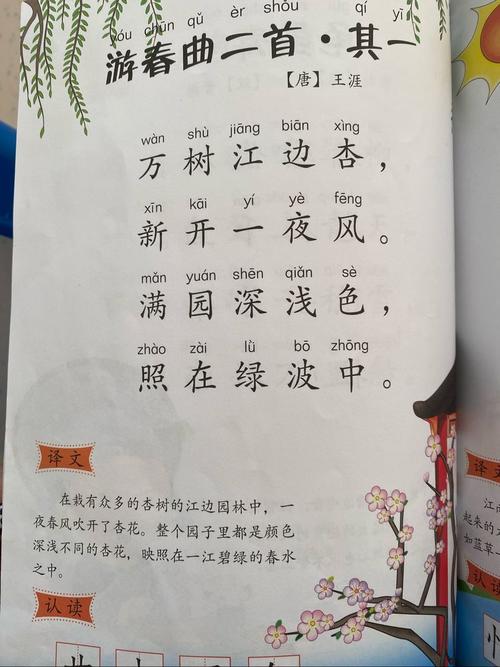 yóu chūn qǔ èr shǒu qí yī
游春曲二首·其一
【唐】王涯
wàn shù jiāng biān xìng
万树江边杏，
xīn kāi yí yè fēng
新开一夜风。
mǎn yuán shēn qiǎn sè
满园深浅色，
zhào zài lǜ bō zhōng
照在绿波中。
译文
在栽有众多的杏树的江边园林中，一
夜春风吹开了杏花。整个园子里都是颜色
深浅不同的杏花，映照在一江碧绿的春水
之中。
认读
译文
江南
起来的太
如蓝草一
认读